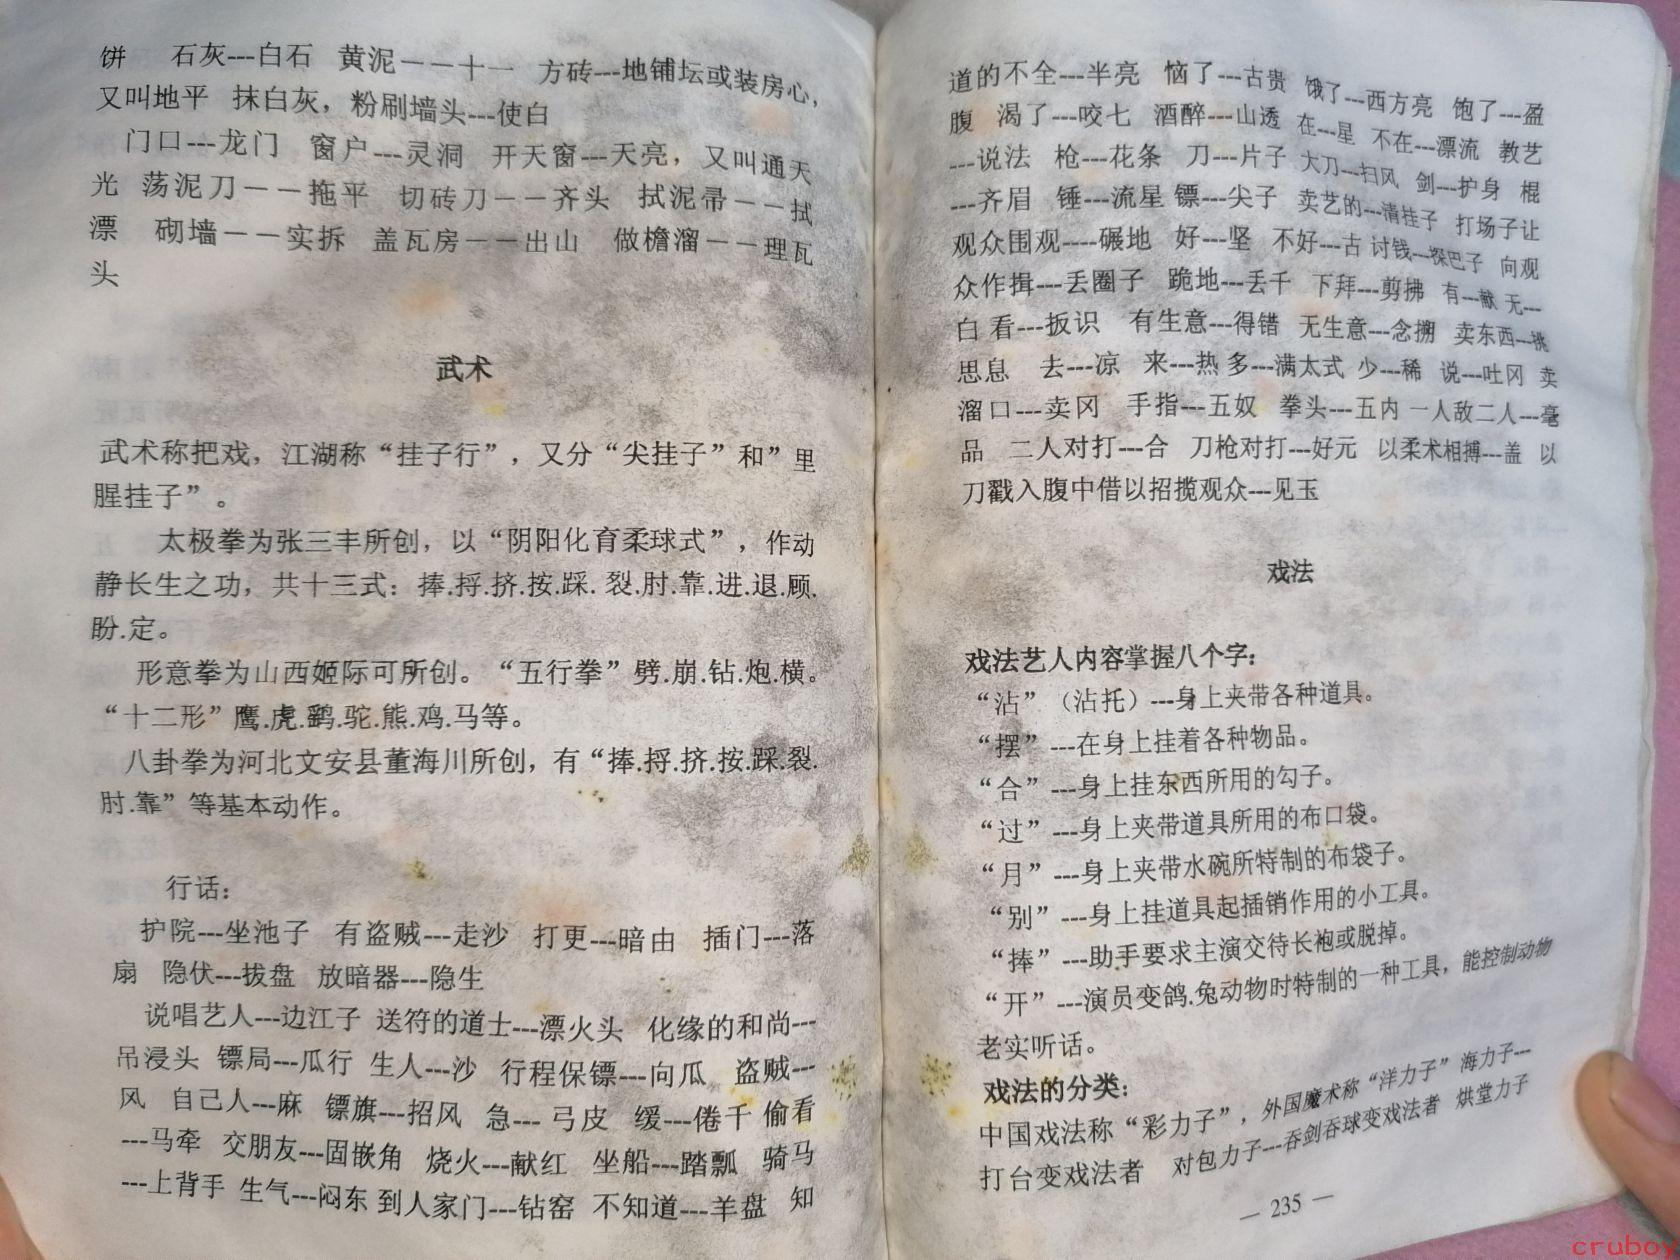 饼 石灰---白石 黄泥－－十一 方砖---地铺坛或装房心，
又叫地平 抹白灰，粉刷墙头---使白
门口---龙门 窗户---灵洞 开天窗---天亮，又叫通天
光 荡泥刀－－拖平 切砖刀－－齐头 拭泥帚－－拭
漂 砌墙－－实拆 盖瓦房－－出山 做檐溜－－理瓦
头
武术
武术称把戏，江湖称“挂子行”，又分“尖挂子”和”里
腥挂子”。
太极拳为张三丰所创，以“阴阳化育柔球式”，作动
静长生之功，共十三式：捧.捋.挤.按.踩.裂.肘.靠.进.退.顾.
盼.定。
形意拳为山西姬际可所创。“五行拳”劈.崩.钻.炮.横。
“十二形”鹰.虎.鹞.驼.熊.鸡.马等。
八卦拳为河北文安县董海川所创，有“捧.捋.挤.按.踩.裂.
肘.靠”等基本动作。
行话：
护院---坐池子 有盗贼---走沙 打更---暗由 插门---落
扇 隐伏---拔盘 放暗器---隐生
说唱艺人---边江子 送符的道士---漂火头 化缘的和尚---
吊浸头 镖局---瓜行 生人---沙 行程保镖---向瓜 盗贼---
风 自己人---麻 镖旗---招风 急---弓皮 缓---倦千 偷看
---马牵 交朋友---固嵌角 烧火---献红 坐船---踏瓢 骑马
---上背手 生气---闷东 到人家门---钻窑 不知道---羊盘 知
道的不全---半亮 恼了---古贵 饿了---西方亮 饱了---盈
腹 渴了---咬七 酒醉---山透 在---星 不在---漂流 教艺
---说法 枪---花条 刀---片子 大刀---扫风 剑---护身 棍
---齐眉 锤---流星 镖---尖子 卖艺的---清挂子 打场子让
观众围观----碾地 好---坚 不好---古 讨钱---探巴子 向观
众作揖---丢圈子 跪地---丢千 下拜---剪拂 有---献 无---
白 看---扳识 有生意---得错 无生意---念搠 卖东西---挑
思息 去---凉 来---热 多---满太式 少---稀 说---吐冈 卖
溜口---卖冈 手指---五奴 拳头---五内 一人敌二人---毫
品 二人对打---合 刀枪对打---好元 以柔术相搏---盖 以
刀戳入腹中借以招揽观众---见玉
戏法
戏法艺人内容掌握八个字：
“沾”（沾托）---身上夹带各种道具。
“摆”---在身上挂着各种物品。
“合”---身上挂东西所用的勾子。
“过”---身上夹带道具所用的布口袋。
“月”---身上夹带水碗所特制的布袋子。
“别”---身上挂道具起插销作用的小工具。
“捧”---助手要求主演交待长袍或脱掉。
“开”---演员变鸽.兔动物时特制的一种工具，能控制动物
老实听话。
戏法的分类：
中国戏法称“彩力子”，外国魔术称“洋力子” 海力子---
打台变戏法者 对包力子---吞剑吞球变戏法者 烘堂力子
— 235 —
cruboy